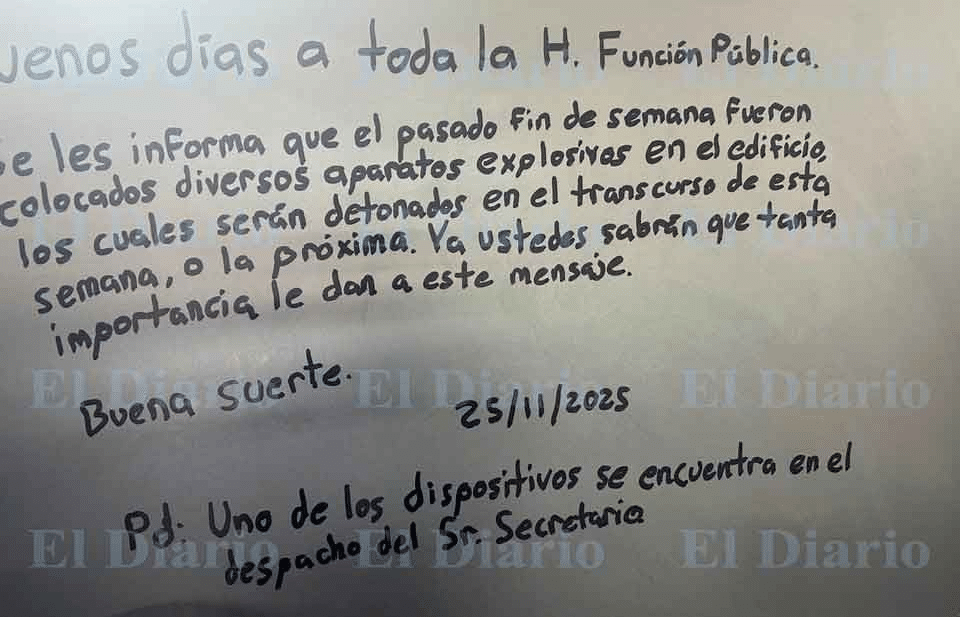 uenos días a toda la H. Función Pública.
se les informa que el pasado fin de semana fueron
colocados diversos aparatos explosivos en el edificio,
los cuales serán detonados en el transcurso de esta
semana, o la próxima. Ya ustedes sabrán que tanta
importancia le dan a este mensaje.
Buena suerte.
25/11/2025
Pd: Uno de los dispositivos se encuentra en el
despacho del Sr. Secretario
El Diario El Diario El Diario
El Diario El Diario El Diario